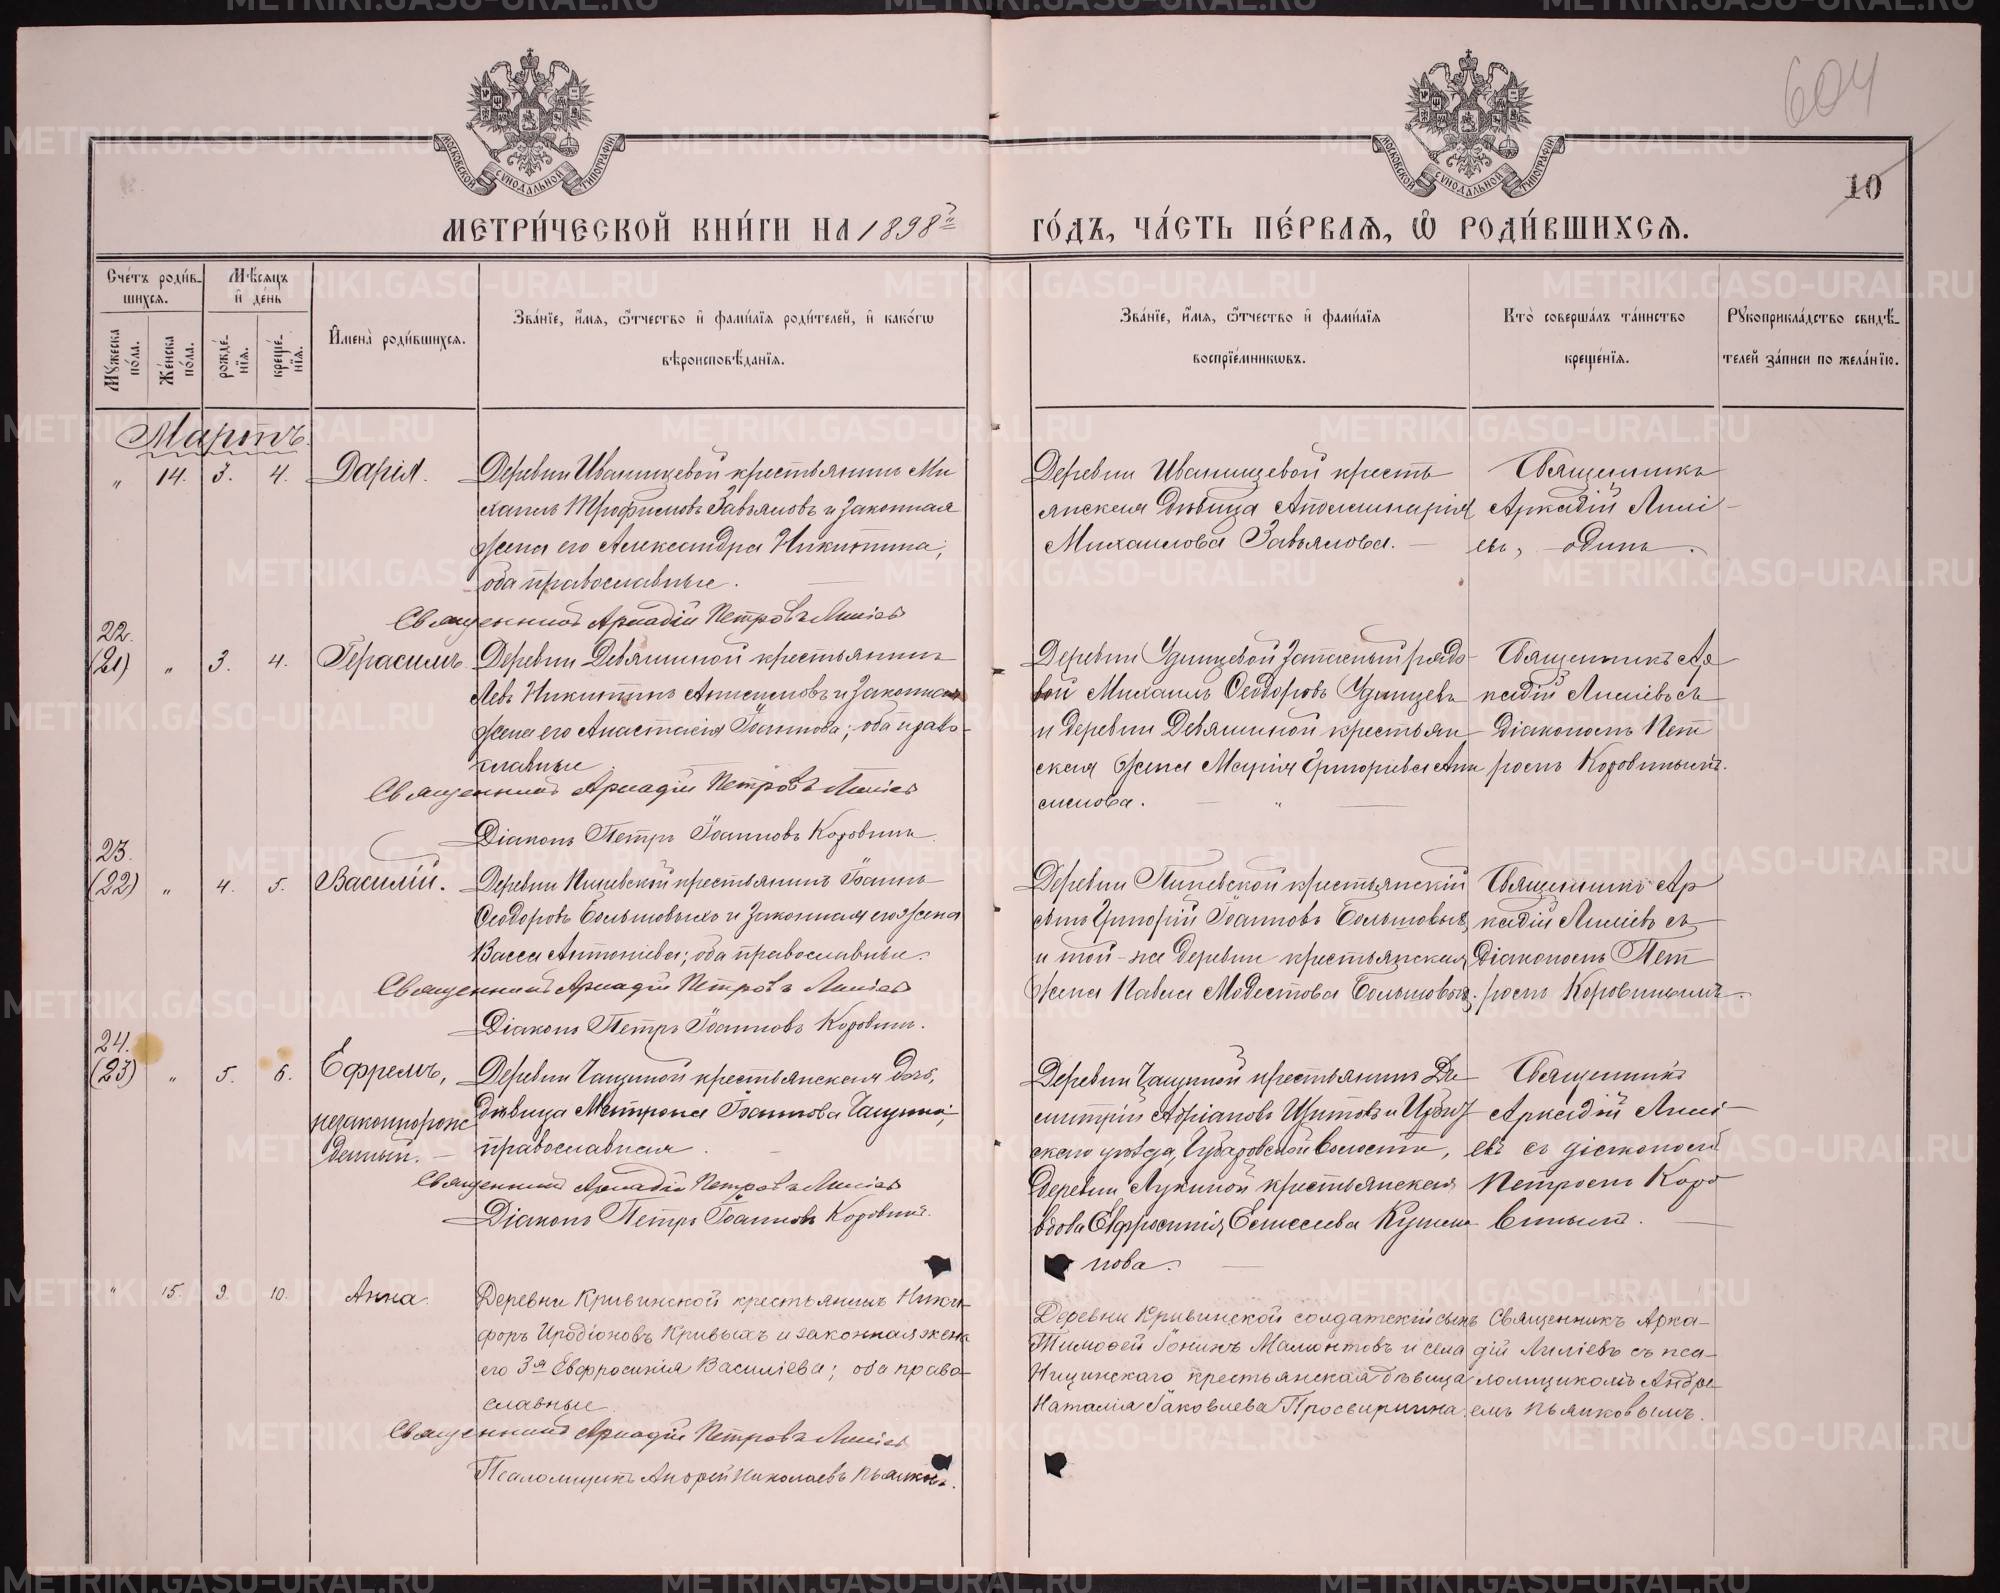 604
10
МОСКОВСКОЙ СѴНОДАЛЬНОЙ ТИПОГРАФІИ
МОСКОВСКОЙ СѴНОДАЛЬНОЙ ТИПОГРАФІИ
МЕТРИ́ЧЕСКОЙ КНИ́ГИ НА 1898й ГО́ДЪ, ЧА́СТЬ ПЕ́РВАѦ, Ѡ҆ РОДИ́ВШИХСѦ.
Сче́тъ роди́в-
шихсѧ.
Мѣ́сѧцъ
и҆ де́нь
Мꙋ́жеска по́ла.
Же́нска по́ла.
рожде́нїѧ.
креще́нїѧ.
И҆мена̀ роди́вшихсѧ.
Зва́нїе, и҆́мѧ, ѻ҆́тчество и҆ фами́лїѧ роди́телей, и҆ како́гѡ
вѣроисповѣ́данїѧ.
Зва́нїе, и҆́мѧ, ѻ҆́тчество и҆ фами́лїѧ
воспрїе́мникѡвъ.
Кто̀ соверша́лъ та́инство
креще́нїѧ.
Рꙋкоприкла́дство свидѣ́-
телей за́писи по жела́нїю.
Мартъ.
„ 14. 3. 4. Дарія.
Деревни Иванищевой крестьянинъ Ми-
хаилъ Трофимовъ Завьяловъ и законная
жена его Александра Никитина;
оба православные.
Священникъ Аркадій Петровъ Лиліевъ
Деревни Иванищевой кресть
янская дѣвица Аполлинарія
Михаилова Завьялова. —
Священникъ
Аркадій Лилі-
евъ, одинъ.
22.
(21) „ 3. 4. Герасимъ
Деревни Девяшиной крестьянинъ
Левъ Никитинъ Анисимовъ и законная
жена его Анастасія Іоаннова; оба право-
славные
Священникъ Аркадій Петровъ Лиліевъ
Діаконъ Петръ Іоанновъ Коровинъ
Деревни Удинцевой запасный рядо-
вой Михаилъ Ѳеодоровъ Удинцевъ
и деревни Девяшиной крестьян-
ская жена Марія Григорьева Ани
симова.
Священникъ Ар
кадій Лиліевъ съ
діакономъ Пет
ромъ Коровинымъ.
23.
(22) „ 4. 5. Василій.
Деревни Пиневской крестьянинъ Іоаннъ
Ѳеодоровъ Большовыхъ и законная его жена
Васса Антоніева; оба православные.
Священникъ Аркадій Петровъ Лиліевъ
Діаконъ Петръ Іоанновъ Коровинъ.
Деревни Пиневской крестьянскій
сынъ Григорій Іоанновъ Большовыхъ
и той-же деревни крестьянская
жена Павла Модестова Большовыхъ.
Священникъ Ар
кадій Лиліевъ съ
Діакономъ Пет
ромъ Коровинымъ.
24.
(23) „ 5. 6. Ефремъ,
незаконнорож
денный. —
Деревни Чащиной крестьянская дочь,
дѣвица Матрона Іоаннова Чащина;
православная.
Священникъ Аркадій Петровъ Лиліевъ
Діаконъ Петръ Іоанновъ Коровинъ.
Деревни Чащиной крестьянинъ Ди-
митрій Адріановъ Щитовъ и Ирбит
скаго уѣзда, Губаровской волости,
деревни Лукиной крестьянская
вдова Евфросинія Елисеева Кукши
нова.
Священникъ
Аркадій Лилі-
евъ съ діакономъ
Петромъ Коро
винымъ.
„ 15. 9. 10. Анна.
Деревни Кривинской крестьянинъ Ники-
форъ Иродіоновъ Кривыхъ и законная жена
его 3я Евфросинія Василіева; оба право-
славные.
Священникъ Аркадій Петровъ Лиліевъ
Псаломщикъ Андрей Николаевъ Пьянковъ.
Деревни Кривинской солдатскій сынъ
Тимоѳей Іонинъ Мамонтовъ и села
Ницинскаго крестьянская дѣвица
Наталія Іаковлева Просвирнина.
Священникъ Арка-
дій Лиліевъ съ пса-
ломщикомъ Андре
емъ Пьянковымъ.